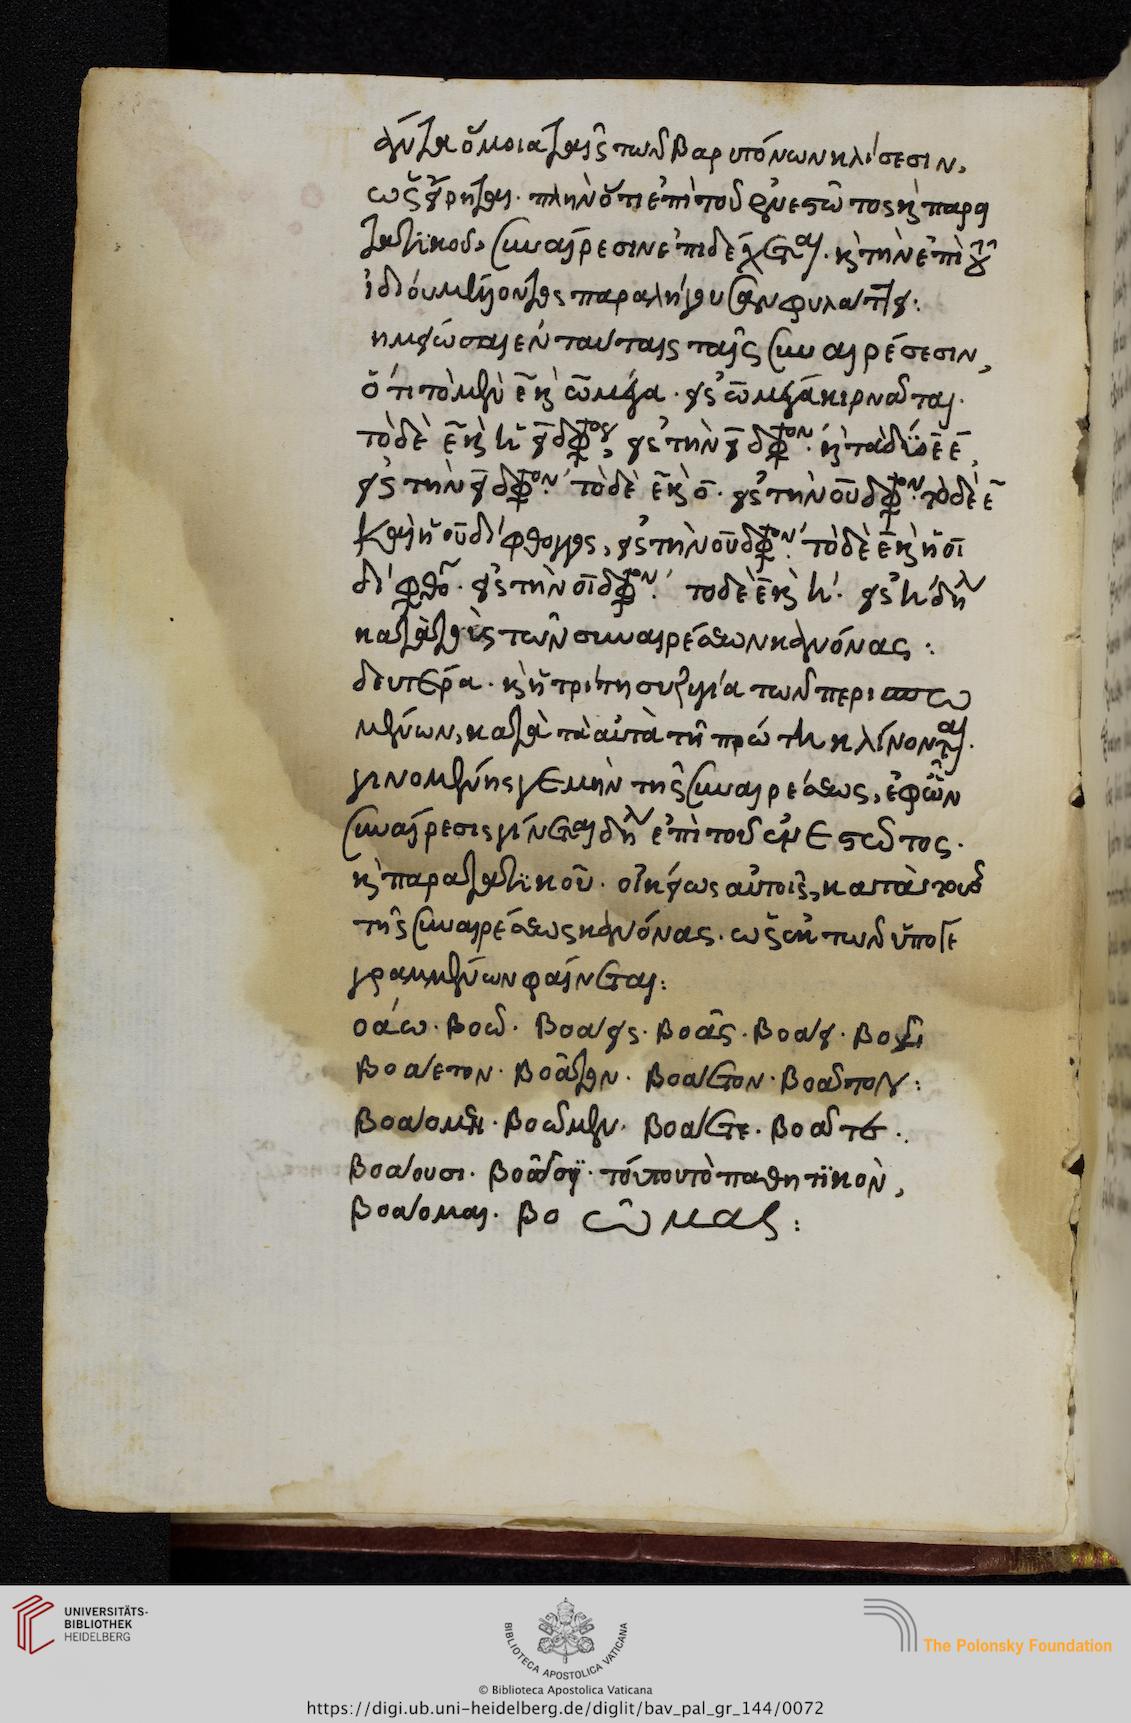 πάντα ὅμοια ταῖς τῶν βαρυτόνων κλίσεσιν,
ὡς εἴρηται. πλὴν ὅτι ἐπὶ τοῦ ἐνεστῶτος κ̀ παρα
τατϊκοῦ, συναίρεσιν ἐπιδέχεται. κ̀ τὴν ἐπὶ
ἰδιότητα
ἐν ταύταις ταῖς συναιρέσεσιν,
ὅτι τὸ μὲν ε̄ κ̀ ω̄ μέγα. εἰς ω̄ μέγα κιρνᾶται.
τὸ δὲ ε̄ κ̀ ἡ εῑ δίφθογγος, εἰς τὴν εῑ δίφθογγον. κ̀ τὰ δύο ε̄ε̄,
εἰς τὴν εῑ δίφθογγον. τὸ δὲ ε̄ κ̀ ο̄. εἰς τὴν οῡ δίφθογγον. τὸ δὲ ε̄
καὶ ἡ οῡ δίφθογγος, εἰς τὴν οῡ δίφθογγον. τὸ δὲ ε̄ κ̀ ἡ οῑ
δίφθογγος. εἰς τὴν οῑ δίφθογγον. τὸ δὲ ε̄ κ̀ η. εἰς η δηλ
κατὰ τοὺς τῶν συναιρέσεων κανόνας:
δευτέρα. κ̀ ἡ τρίτη συζυγία τῶν περισπω
μένων, κατὰ τὰ αὐτὰ τῇ πρώτῃ κλίνονται.
γινομένης γε μὴν τῆς συναιρέσεως, ἐφ' ὧν
συναίρεσις γίνεται δηλ ἐπὶ τοῦ ἐνεστῶτος.
κ̀ παρατατϊκοῦ. οἰκείως αὐτοῖς, κατὰ τοὺς
τῆς συναιρέσεως κανόνας. ὡς ἐκ τῶν ὑπογε
γραμμένων φαίνεται:
οάω. βοῶ. βοάεις. βοᾷς. βοάει. βοᾷ
βοάετον. βοᾶτον. βοάετον. βοᾶτον:
βοάομεν. βοῶμεν. βοάετε. βοᾶτε.
βοάουσι. βοῶσϊ. τούτου τὸ παθητϊκὸν,
βοάομαι. βοῶμαι:
UNIVERSITÄTS-
BIBLIOTHEK
HEIDELBERG
BIBLIOTECA APOSTOLICA VATICANA
The Polonsky Foundation
© Biblioteca Apostolica Vaticana
https://digi.ub.uni-heidelberg.de/diglit/bav_pal_gr_144/0072